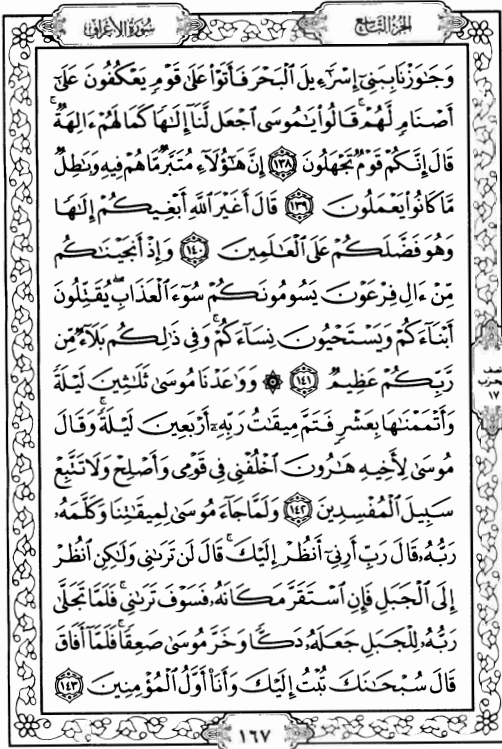 سُورَةُ الأَعۡرَافِ
الجُزۡءُ التَّاسِعُ
وَجَٰوَزۡنَا بِبَنِيٓ إِسۡرَٰٓءِيلَ ٱلۡبَحۡرَ فَأَتَوۡاْ عَلَىٰ قَوۡمٖ يَعۡكُفُونَ عَلَىٰٓ
أَصۡنَامٖ لَّهُمۡۚ قَالُواْ يَٰمُوسَى ٱجۡعَل لَّنَآ إِلَٰهٗا كَمَا لَهُمۡ ءَالِهَةٞۚ
قَالَ إِنَّكُمۡ قَوۡمٞ تَجۡهَلُونَ ١٣٨ إِنَّ هَٰٓؤُلَآءِ مُتَبَّرٞ مَّا هُمۡ فِيهِ وَبَٰطِلٞ
مَّا كَانُواْ يَعۡمَلُونَ ١٣٩ قَالَ أَغَيۡرَ ٱللَّهِ أَبۡغِيكُمۡ إِلَٰهٗا
وَهُوَ فَضَّلَكُمۡ عَلَى ٱلۡعَٰلَمِينَ ١٤٠ وَإِذۡ أَنجَيۡنَٰكُم
مِّنۡ ءَالِ فِرۡعَوۡنَ يَسُومُونَكُمۡ سُوٓءَ ٱلۡعَذَابِ يُقَتِّلُونَ
أَبۡنَآءَكُمۡ وَيَسۡتَحۡيُونَ نِسَآءَكُمۡۚ وَفِي ذَٰلِكُم بَلَآءٞ مِّن
رَّبِّكُمۡ عَظِيمٞ ١٤١ ۞ وَوَٰعَدۡنَا مُوسَىٰ ثَلَٰثِينَ لَيۡلَةٗ
وَأَتۡمَمۡنَٰهَا بِعَشۡرٖ فَتَمَّ مِيقَٰتُ رَبِّهِۦٓ أَرۡبَعِينَ لَيۡلَةٗۚ وَقَالَ
مُوسَىٰ لِأَخِيهِ هَٰرُونَ ٱخۡلُفۡنِي فِي قَوۡمِي وَأَصۡلِحۡ وَلَا تَتَّبِعۡ
سَبِيلَ ٱلۡمُفۡسِدِينَ ١٤٢ وَلَمَّا جَآءَ مُوسَىٰ لِمِيقَٰتِنَا وَكَلَّمَهُۥ
رَبُّهُۥ قَالَ رَبِّ أَرِنِيٓ أَنظُرۡ إِلَيۡكَۚ قَالَ لَن تَرَىٰنِي وَلَٰكِنِ ٱنظُرۡ
إِلَى ٱلۡجَبَلِ فَإِنِ ٱسۡتَقَرَّ مَكَانَهُۥ فَسَوۡفَ تَرَىٰنِيۚ فَلَمَّا تَجَلَّىٰ
رَبُّهُۥ لِلۡجَبَلِ جَعَلَهُۥ دَكّٗا وَخَرَّ مُوسَىٰ صَعِقٗاۚ فَلَمَّآ أَفَاقَ
قَالَ سُبۡحَٰنَكَ تُبۡتُ إِلَيۡكَ وَأَنَا۠ أَوَّلُ ٱلۡمُؤۡمِنِينَ ١٤٣
نصف
الحزب
١٧
١٦٧